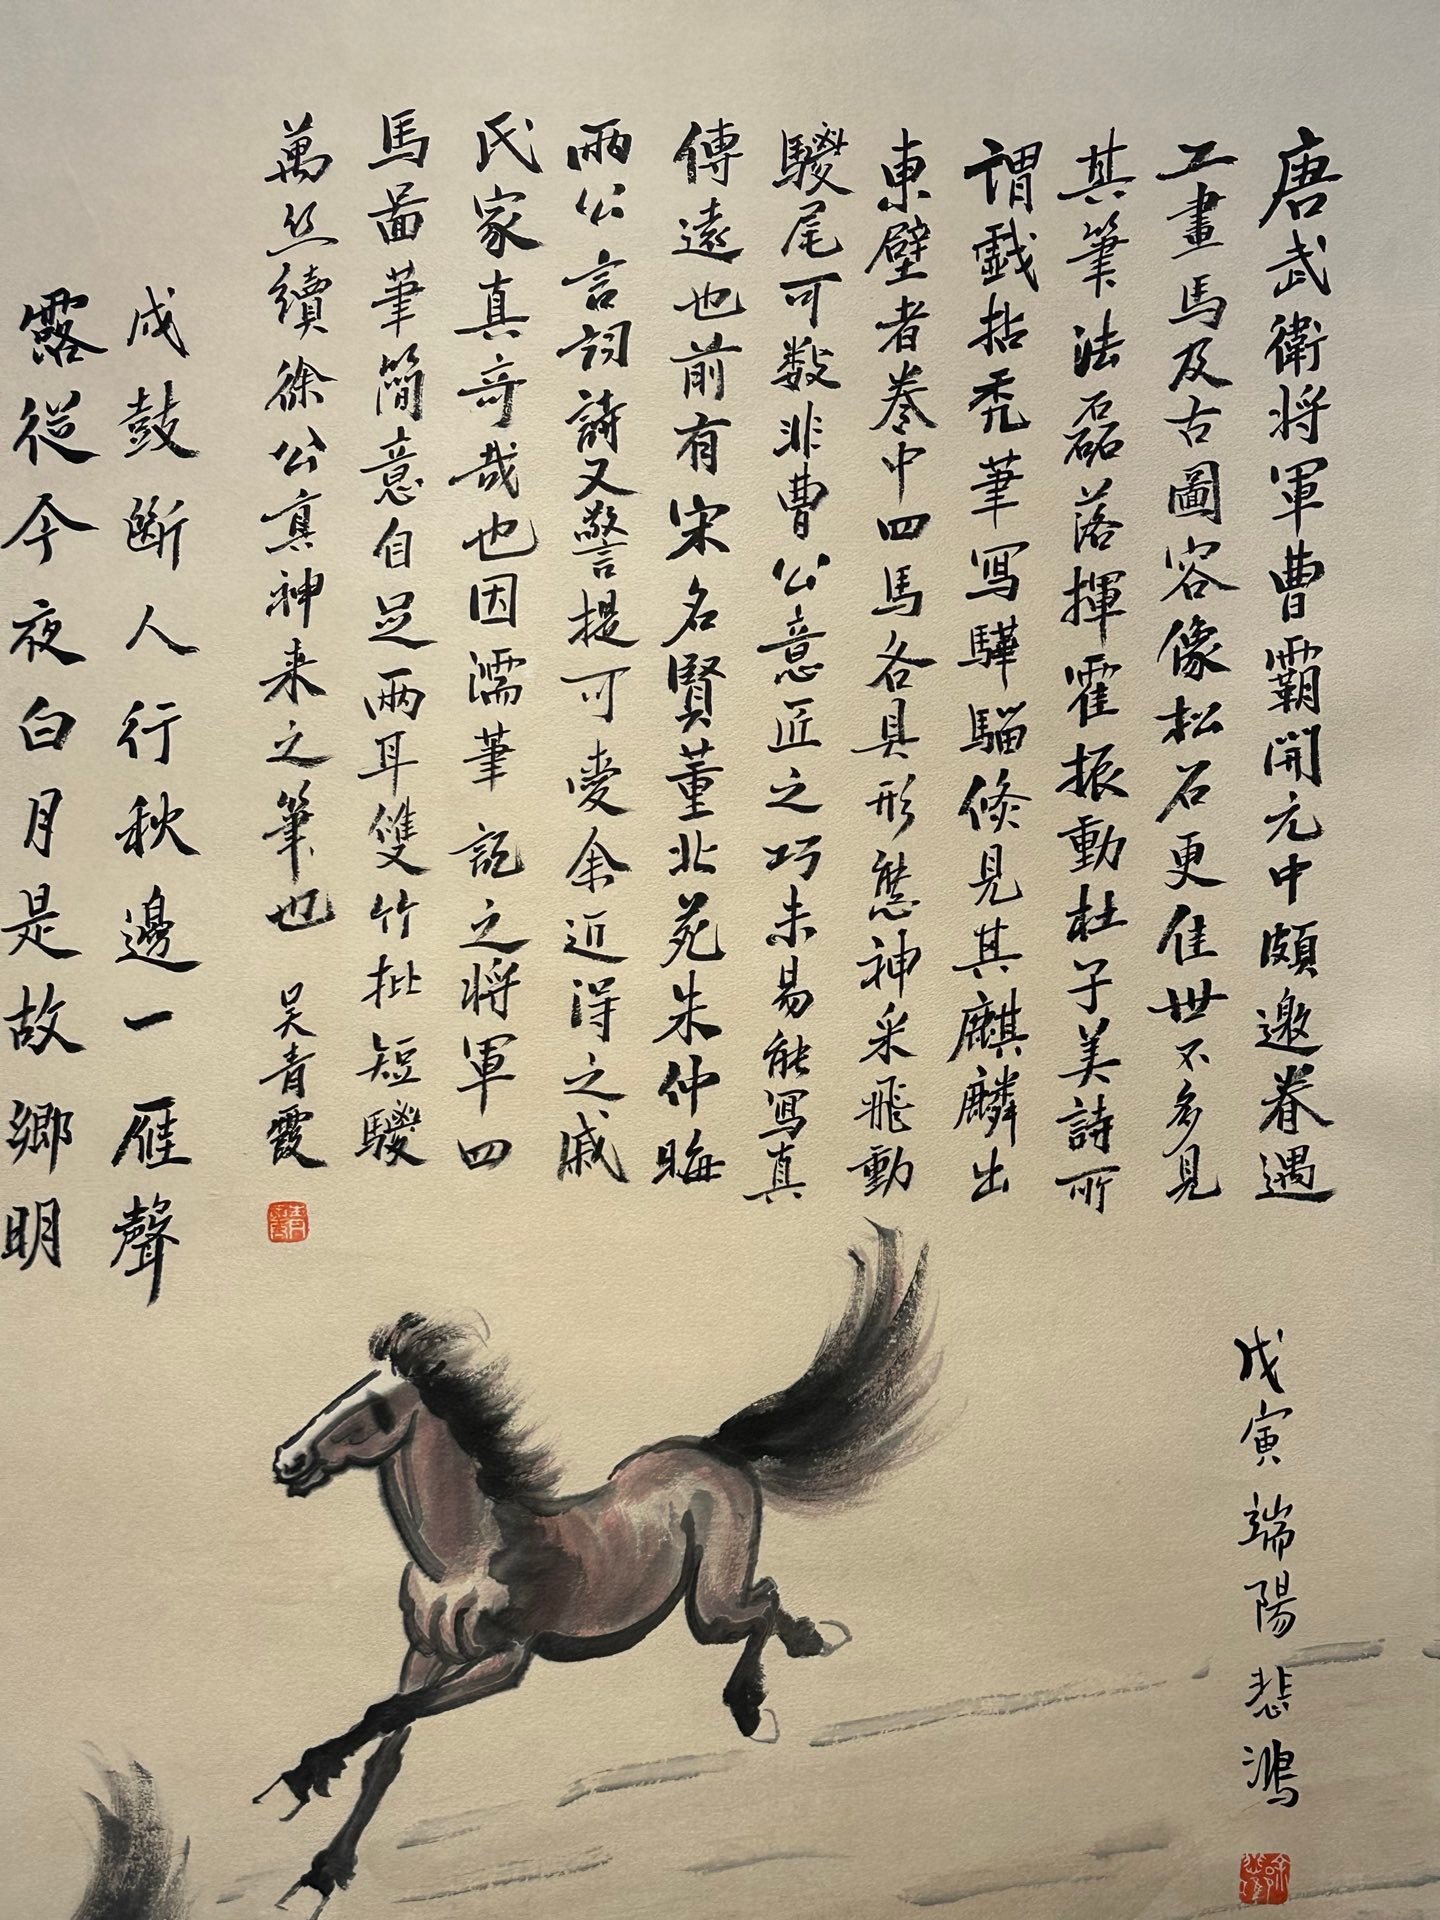 唐武衛将軍曹霸開元中頗邀眷遇
工畫馬及古圖容像松石更佳世不多見
其筆法磊落揮霍振動杜子美詩所
謂戲拈禿筆写驊騮倏見其麒麟出
東壁者卷中四馬各具形態神采飛動
騣尾可数非曹公意匠之巧未易能写真
傳遠也前有宋名賢董北苑朱仲晦
兩公言詞詩又警提可愛余近得之戚
民家真奇哉也因濡筆記之将軍四
馬啚筆簡意自足兩耳雙竹批短騣
萬丝續徐公真神来之筆也 吴青霞
戍鼓斷人行秋邊一雁聲
露從今夜白月是故鄉明
戊寅端陽悲鴻